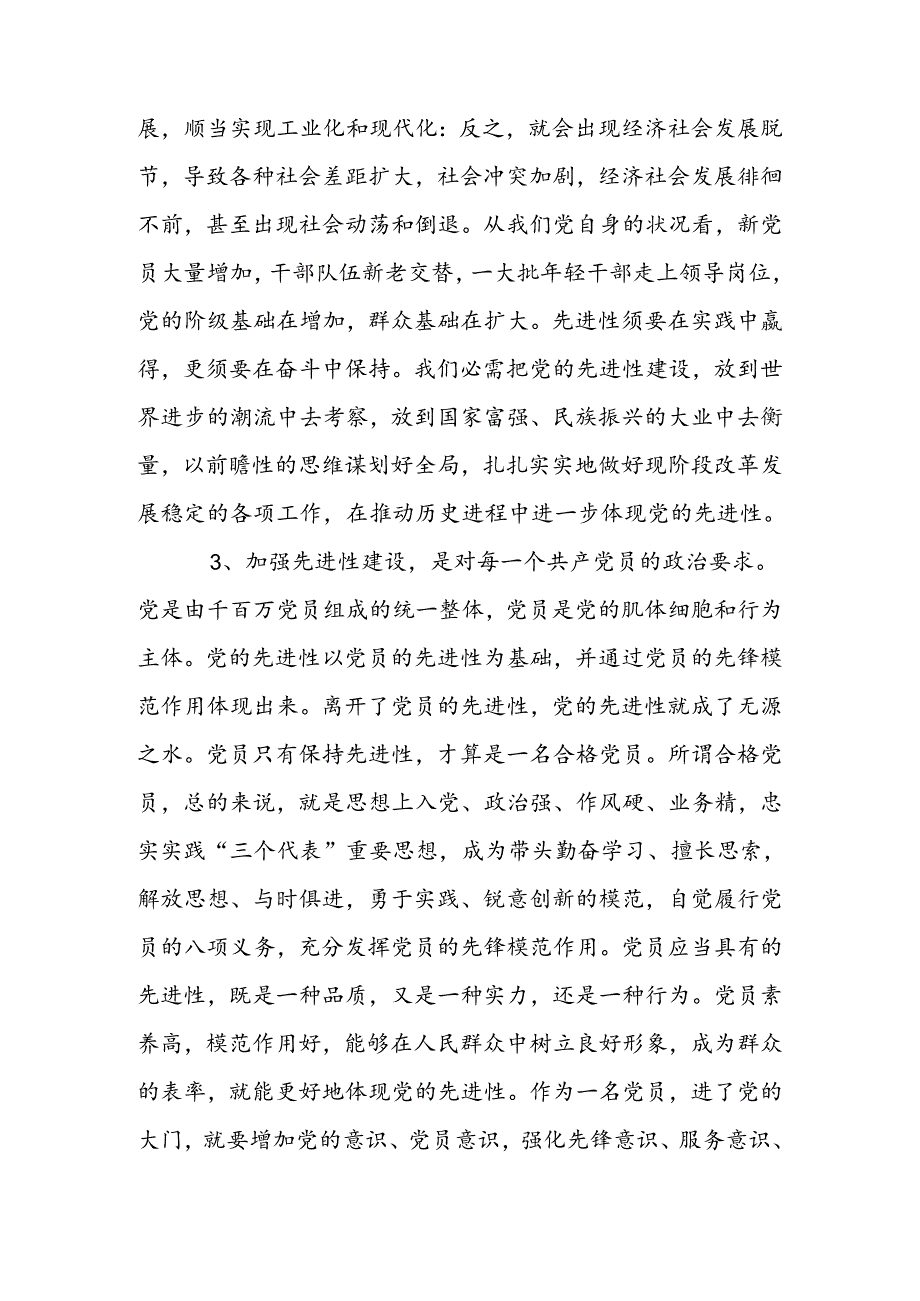 展，顺当实现工业化和现代化：反之，就会出现经济社会发展脱
节，导致各种社会差距扩大，社会冲突加剧，经济社会发展徘徊
不前，甚至出现社会动荡和倒退。从我们党自身的状况看，新党
员大量增加，干部队伍新老交替，一大批年轻干部走上领导岗位，
党的阶级基础在增加，群众基础在扩大。先进性须要在实践中赢
得，更须要在奋斗中保持。我们必需把党的先进性建设，放到世
界进步的潮流中去考察，放到国家富强、民族振兴的大业中去衡
量，以前瞻性的思维谋划好全局，扎扎实实地做好现阶段改革发
展稳定的各项工作，在推动历史进程中进一步体现党的先进性。
3、加强先进性建设，是对每一个共产党员的政治要求。
党是由千百万党员组成的统一整体，党员是党的肌体细胞和行为
主体。党的先进性以党员的先进性为基础，并通过党员的先锋模
范作用体现出来。离开了党员的先进性，党的先进性就成了无源
之水。党员只有保持先进性，才算是一名合格党员。所谓合格党
员，总的来说，就是思想上入党、政治强、作风硬、业务精，忠
实实践“三个代表”重要思想，成为带头勤奋学习、擅长思索，
解放思想、与时俱进，勇于实践、锐意创新的模范，自觉履行党
员的八项义务，充分发挥党员的先锋模范作用。党员应当具有的
先进性，既是一种品质，又是一种实力，还是一种行为。党员素
养高，模范作用好，能够在人民群众中树立良好形象，成为群众
的表率，就能更好地体现党的先进性。作为一名党员，进了党的
大门，就要增加党的意识、党员意识，强化先锋意识、服务意识、